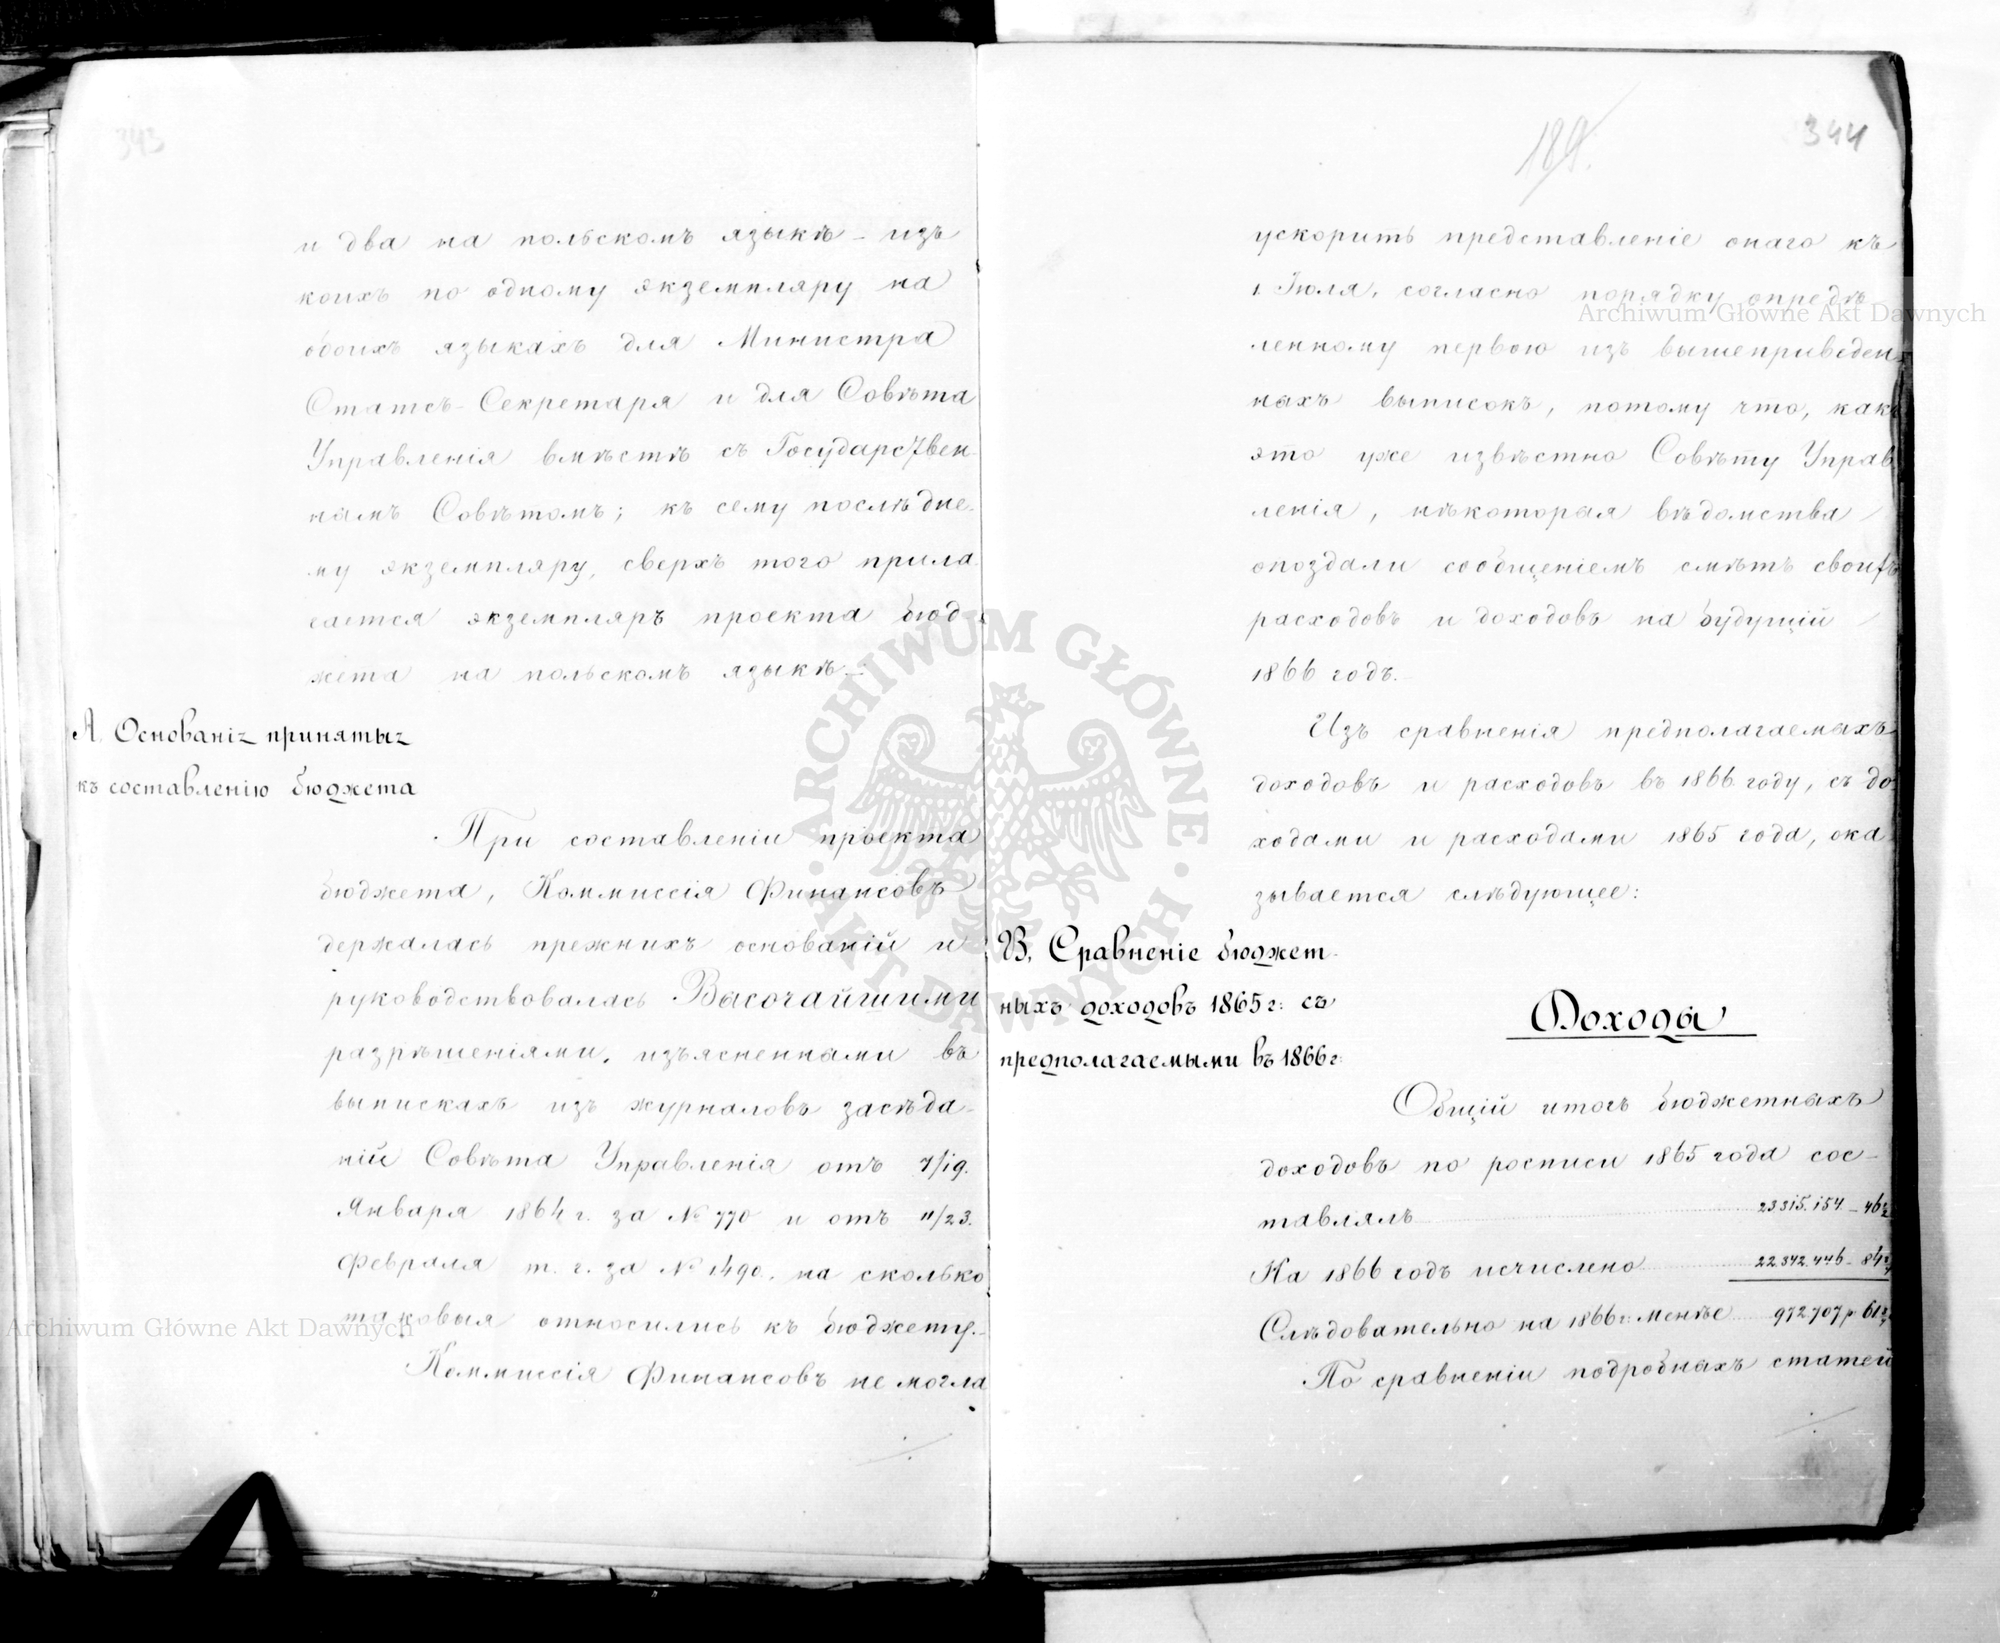 343
и два на польскомъ языкѣ - изъ
коихъ по одному экземпляру на
обоихъ языкахъ для Министра
Статсъ-Секретаря и для Совѣта
Управленія вмѣстѣ съ Государствен-
нымъ Совѣтомъ; къ сему послѣдне-
му экземпляру, сверхъ того прила-
гается экземпляръ проекта бюд-
жета на польскомъ языкѣ.-
А. Основанія принятыя
къ составленію бюджета
При составленіи проекта
бюджета, Коммиссія Финансовъ
держалась прежнихъ основаній и
руководствовалась Высочайшими
разрѣшеніями, изъясненными въ
выпискахъ изъ журналовъ засѣда-
ній Совѣта Управленія отъ 7/19.
Января 1864 г. за № 770 и отъ 11/23.
Февраля т. г. за № 1490, на сколько
таковыя относились къ бюджету.-
Коммиссія Финансовъ не могла
189.
344
ускорить представленіе онаго къ
1 Іюля, согласно порядку опредѣ-
ленному первою изъ вышеприведен-
ныхъ выписокъ, потому что, какъ
это уже извѣстно Совѣту Управ-
ленія, нѣкоторыя вѣдомства
опоздали сообщеніемъ смѣтъ своихъ
расходовъ и доходовъ на будущій
1866 годъ.
Изъ сравненія предполагаемыхъ
доходовъ и расходовъ въ 1866 году, съ до-
ходами и расходами 1865 года, ока-
зывается слѣдующее:
В. Сравненіе бюджет-
ныхъ доходовъ 1865 г: съ
предполагаемыми въ 1866 г:
Доходы
Общій итогъ бюджетныхъ
доходовъ по росписи 1865 года сос-
тавлялъ 23315.154 - 46½
На 1866 годъ исчислено 22.342.446 - 84¾
Слѣдовательно на 1866 г: менѣе 972707 р 61¾
По сравненіи подробныхъ статей
Archiwum Główne Akt Dawnych
Archiwum Główne Akt Dawnych
ARCHIWUM GŁÓWNE · AKT DAWNYCH ·